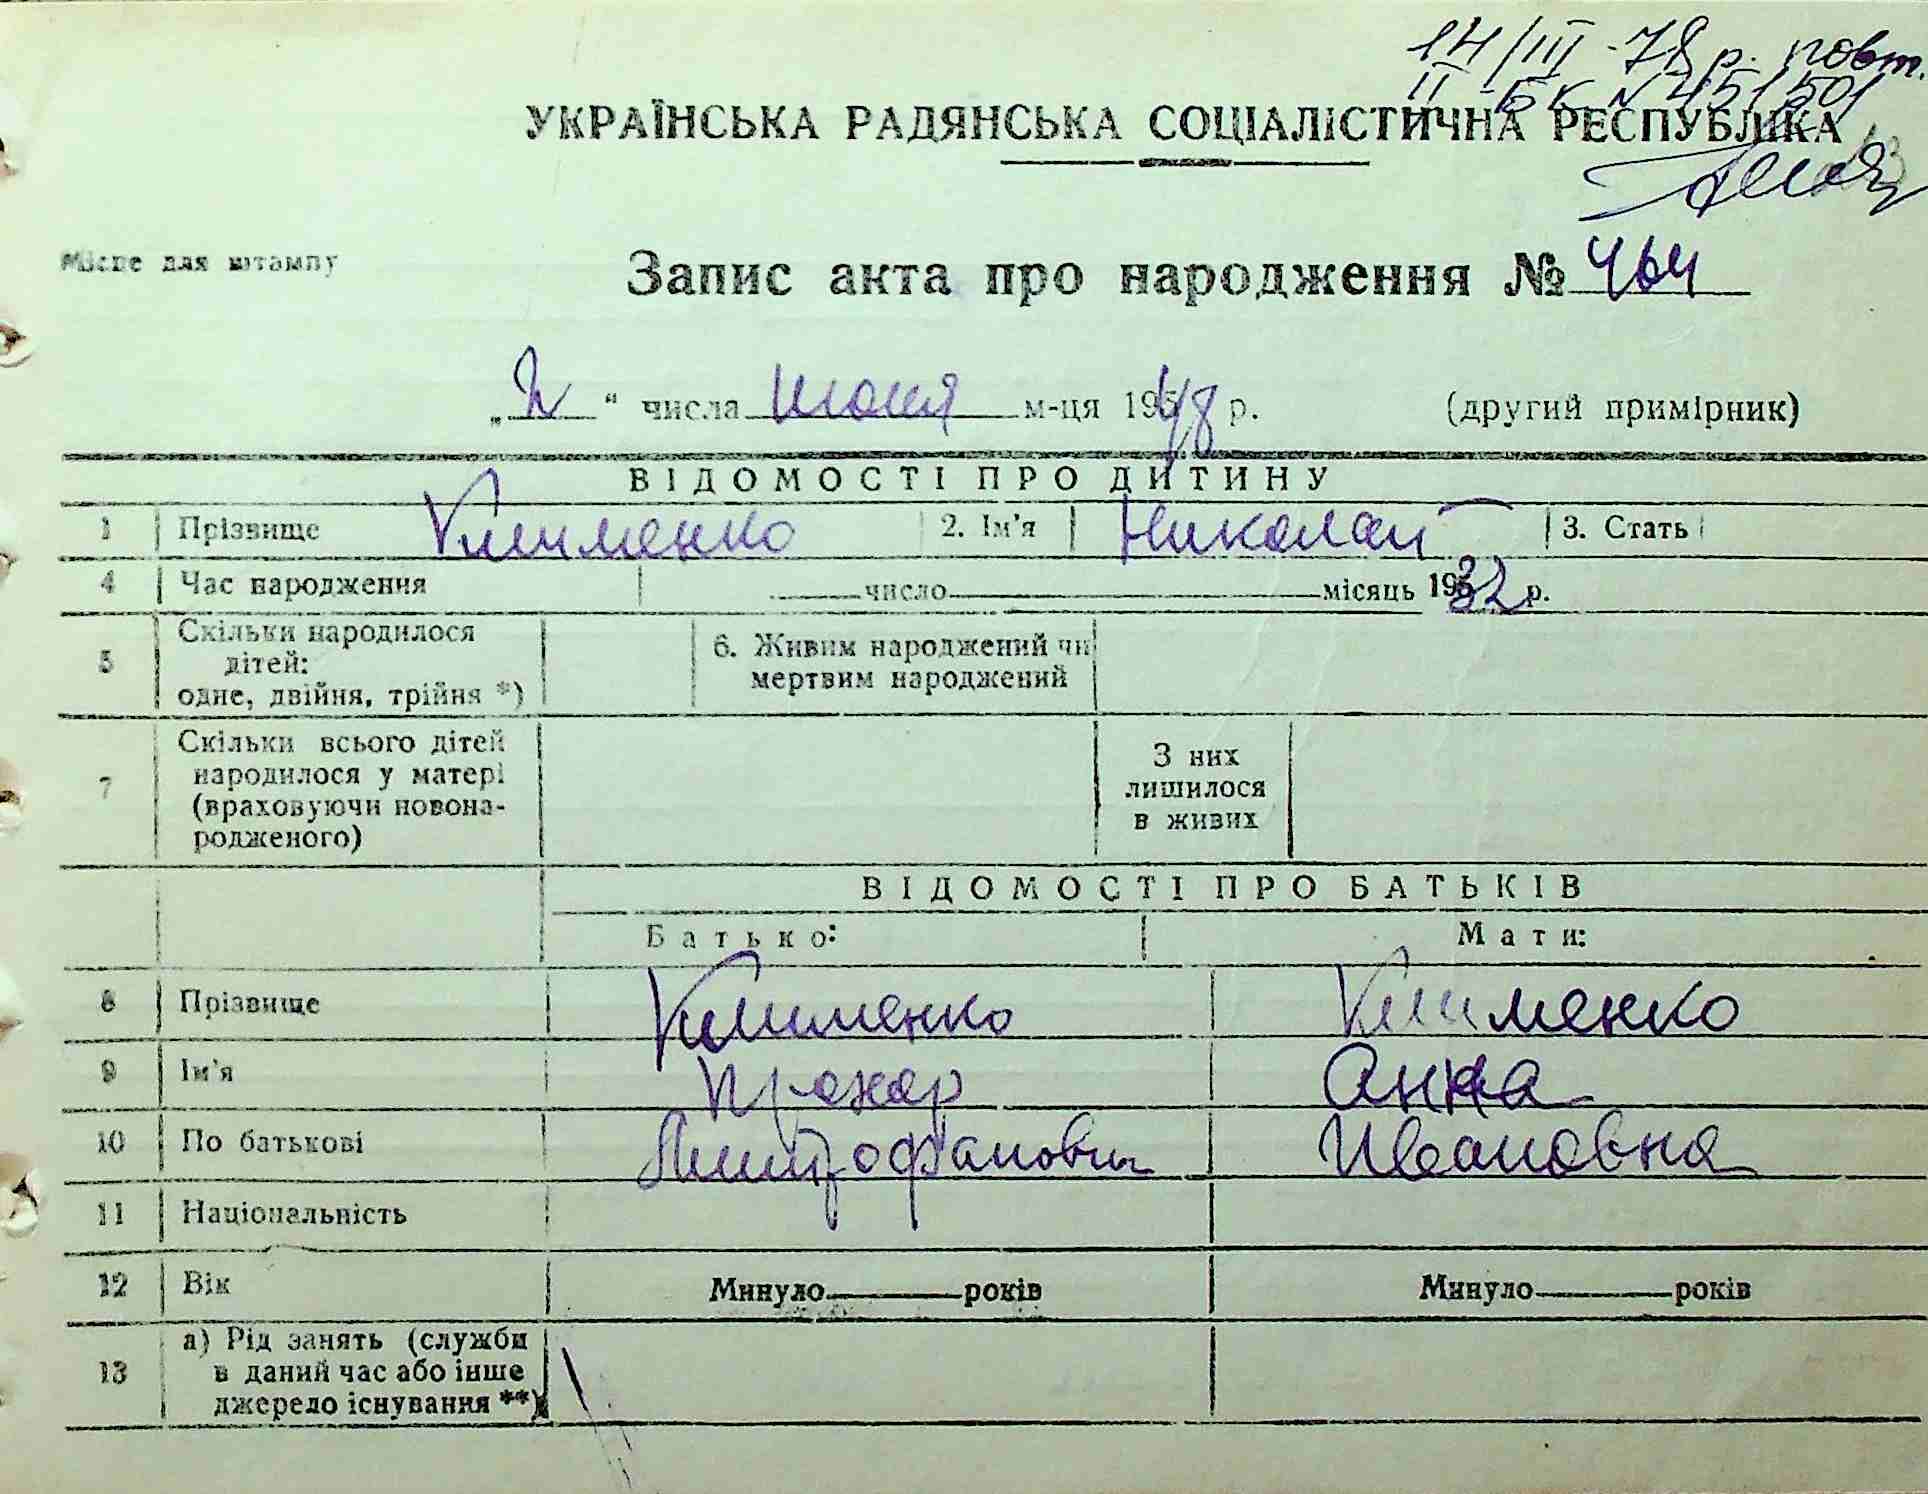 14/III-78 р. повт.
II БК № 45150
УКРАЇНСЬКА РАДЯНСЬКА СОЦІАЛІСТИЧНА РЕСПУБЛІКА
Місце для штампу
Запис акта про народження № 464
„2“ числа июня м-ця 1948 р. (другий примірник)
ВІДОМОСТІ ПРО ДИТИНУ
1 Прізвище Клименко 2. Ім'я Николай 3. Стать
4 Час народження число місяць 1932 р.
5 Скільки народилося
дітей:
одне, двійня, трійня *)
6. Живим народжений чи
мертвим народжений
7 Скільки всього дітей
народилося у матері
(враховуючи новона-
родженого)
З них
лишилося
в живих
ВІДОМОСТІ ПРО БАТЬКІВ
Батько: Мати:
8 Прізвище Клименко Клименко
9 Ім'я Прохор Анна
10 По батькові Митрофанович Ивановна
11 Національність
12 Вік Минуло років Минуло років
13 а) Рід занять (служби
в даний час або інше
джерело існування **)